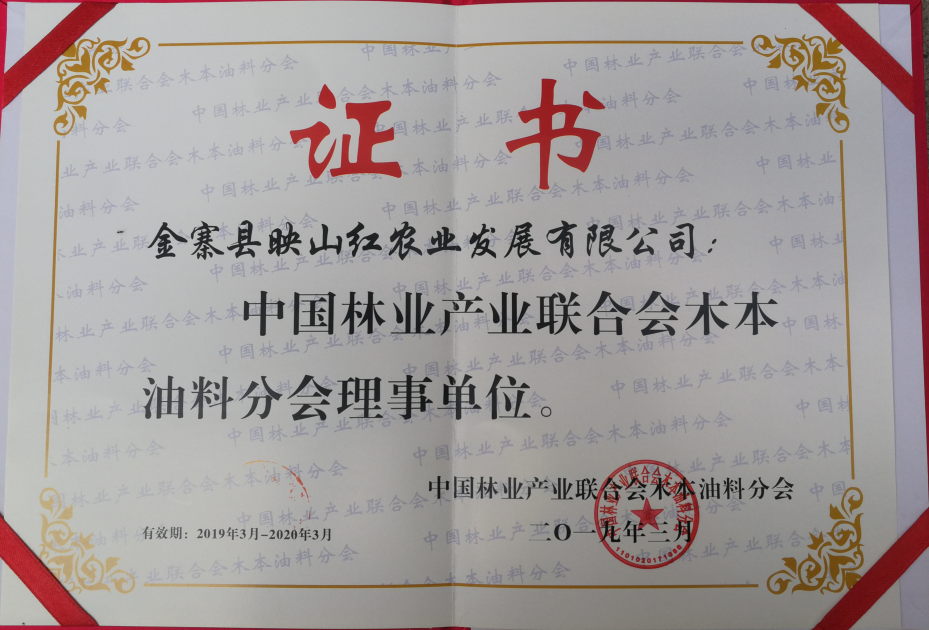 证书
金寨县映山红农业发展有限公司：
中国林业产业联合会木本
油料分会理事单位。
中国林业产业联合会木本油料分会
有效期：2019年3月-2020年3月
二〇一九年三月